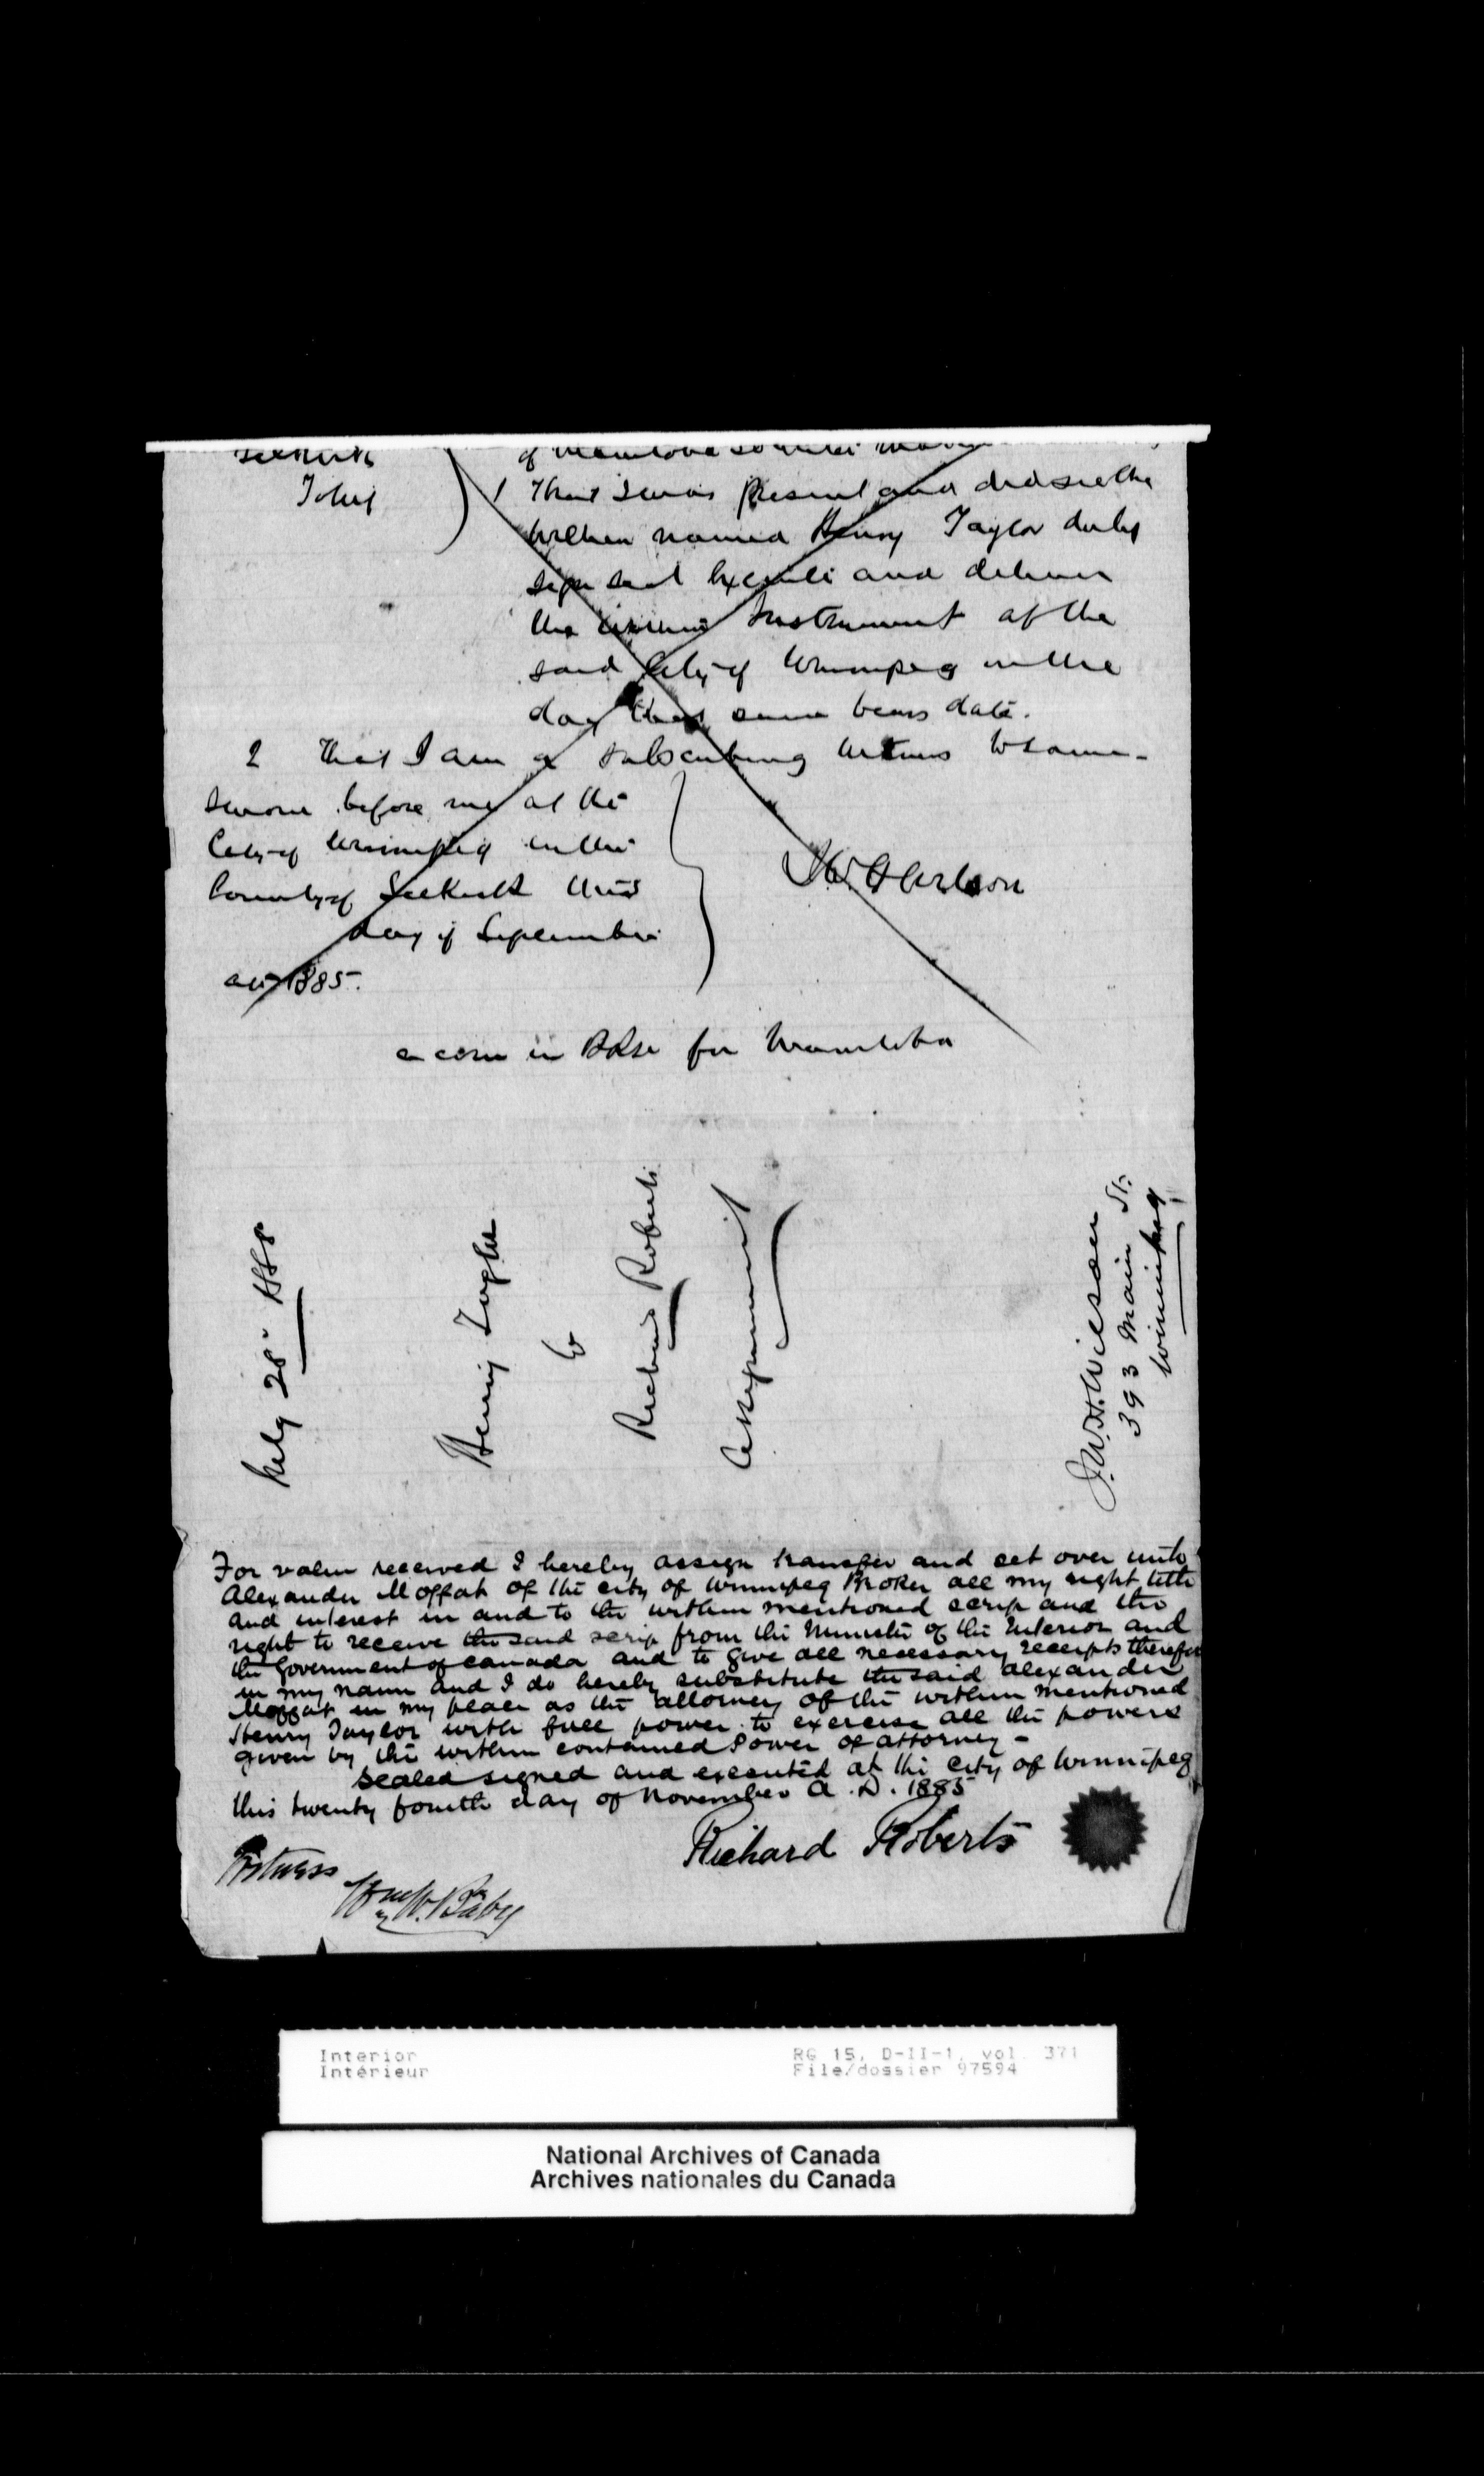 Selkirk
To Wit
of Manitoba
1 That I was present and did see the
within named Henry Taylor duly
sign seal execute and deliver
the within Instrument at the
said City of Winnipeg on the
day the same bears date.
2 That I am a subscribing witness to same.
Sworn before me at the
City of Winnipeg in the
County of Selkirk this
day of September
AD 1885.
J W H Wilson
a com in B.R. &c for Manitoba
28
Henry Taylor
to
Richard Roberts
Assignment
J.W.H. Wilson
393 Main St.
Winnipeg
For value received I hereby assign transfer and set over unto
Alexander Moffat of the city of Winnipeg Broker all my right title
and interest in and to the within mentioned scrip and the
right to receive the said scrip from the Minister of the Interior and
the Government of Canada and to give all necessary receipts therefor
in my name and I do hereby substitute the said Alexander
Moffat in my place as the attorney of the within mentioned
Henry Taylor with full power to exercise all the powers
given by the within contained Power of attorney -
Sealed signed and executed at the City of Winnipeg
this twenty fourth day of November A.D. 1885
Richard Roberts
Witness
Wm W. Baby
Interior
Intérieur
RG 15, D-II-1, vol. 371
File/dossier 97594
National Archives of Canada
Archives nationales du Canada